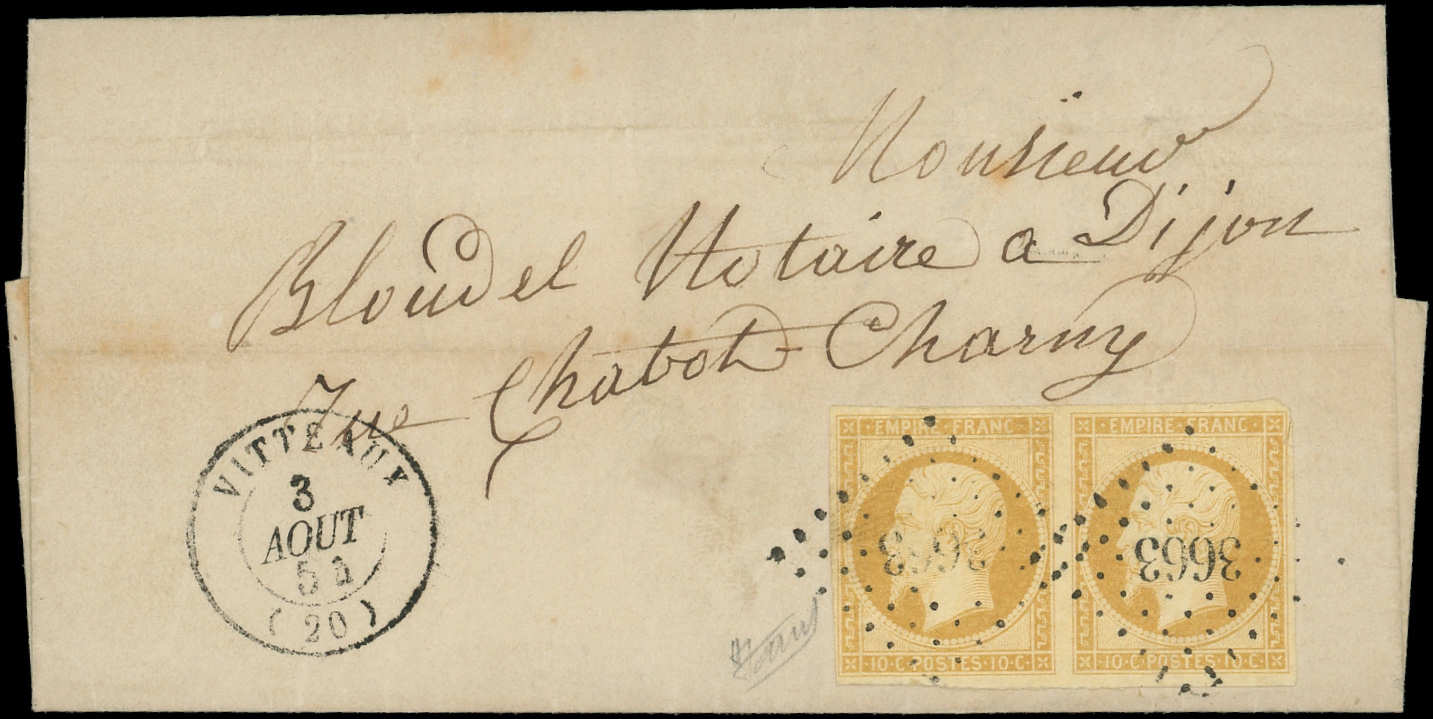 Monsieur
Bloudel Notaire a Dijon
Rue Chabot Charny
VITTEAUX
3
AOUT
(20)
EMPIRE · FRANC · EMPIRE · FRANC ·
3663 3663
10 · C · POSTES · 10 · C · 10 · C · POSTES · 10 · C ·